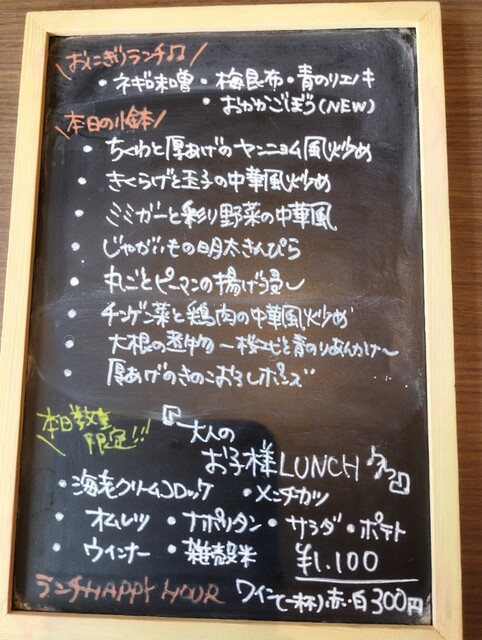 おにぎりランチ♫
・ネギ味噌・梅昆布・青のリエノキ
・おかかごぼう(NEW)
本日の小鉢
・ちくわと厚あげのヤンニョム風炒め
・きくらげと玉子の中華風炒め
・ミミガーと彩り野菜の中華風
・じゃがいもの明太きんぴら
・丸ごとピーマンの揚げ浸し
・チンゲン菜と鶏肉の中華風炒め
・大根の煮物〜桜エビと青のりあんかけ〜
・厚あげのきのこおろしポンズ
本日数量限定!!
『大人の
お子様LUNCH
・海老クリームコロッケ ・メンチカツ
・オムレツ ・ナポリタン ・サラダ ・ポテト
・ウインナー ・雑穀米 ¥1.100
ランチHAPPY HOUR ワイン(一杯)赤・白300円